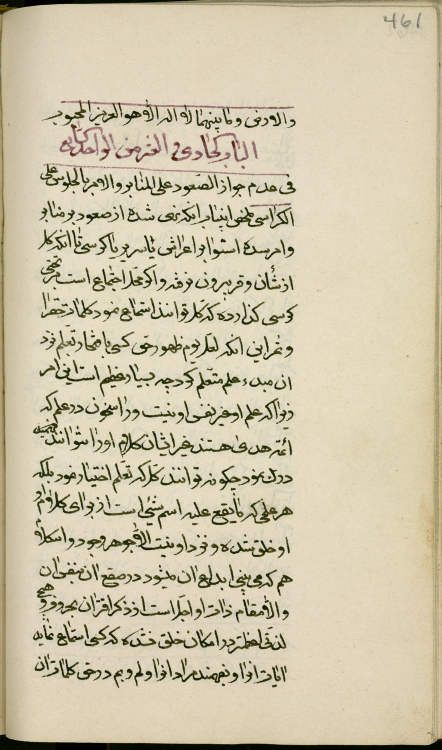 461
والارض وما بینهما لا اله الا هو العزیز المحبوب
الباب الحادی و العشر من الواحد
فی عدم جواز الصعود علی المنابر والامر بالجلوس علی
الکراسی ملخص این باب آنکه نهی شده از صعود بر منابر
وامر شده استواء بر اعراش یا سریر یا کرسی تا آنکه کل
از شأن وقر بیرون نرفته واگر محل اجتماع است
کرسی گذارده که کل توانند استماع نمود کلمات حق را
و ثمره این آنکه لعل یوم ظهور حق کسی باحضار تعلم نزد
ان مبدء علم متعلم گردد چه بسیار عظیم است این امر
زیرا که علم او غیر نفس او نیست و راسخون در علم که
ائمه هدی هستند غیر ایشان کلام او را نتوانند
درک نمود چگونه توانند کل که تعلم اختیار نمود بلکه
هر علمی که ما یقع علیه اسم شیئی است از برای کلام او
او خلق شده و نزد او نیست الا جوهر وجود واسکلام
هم که می بینی ابداع ان میشود در صقع ان نفس ان
والا مقام ذات او اجل است از ذکر اقتران بحروف و هیچ
لذتی اعظم تر در امکان خلق نشده که کسی استماع نماید
ایات او را و بفهمد مراد او را و لم و بم در حق کلمات ان